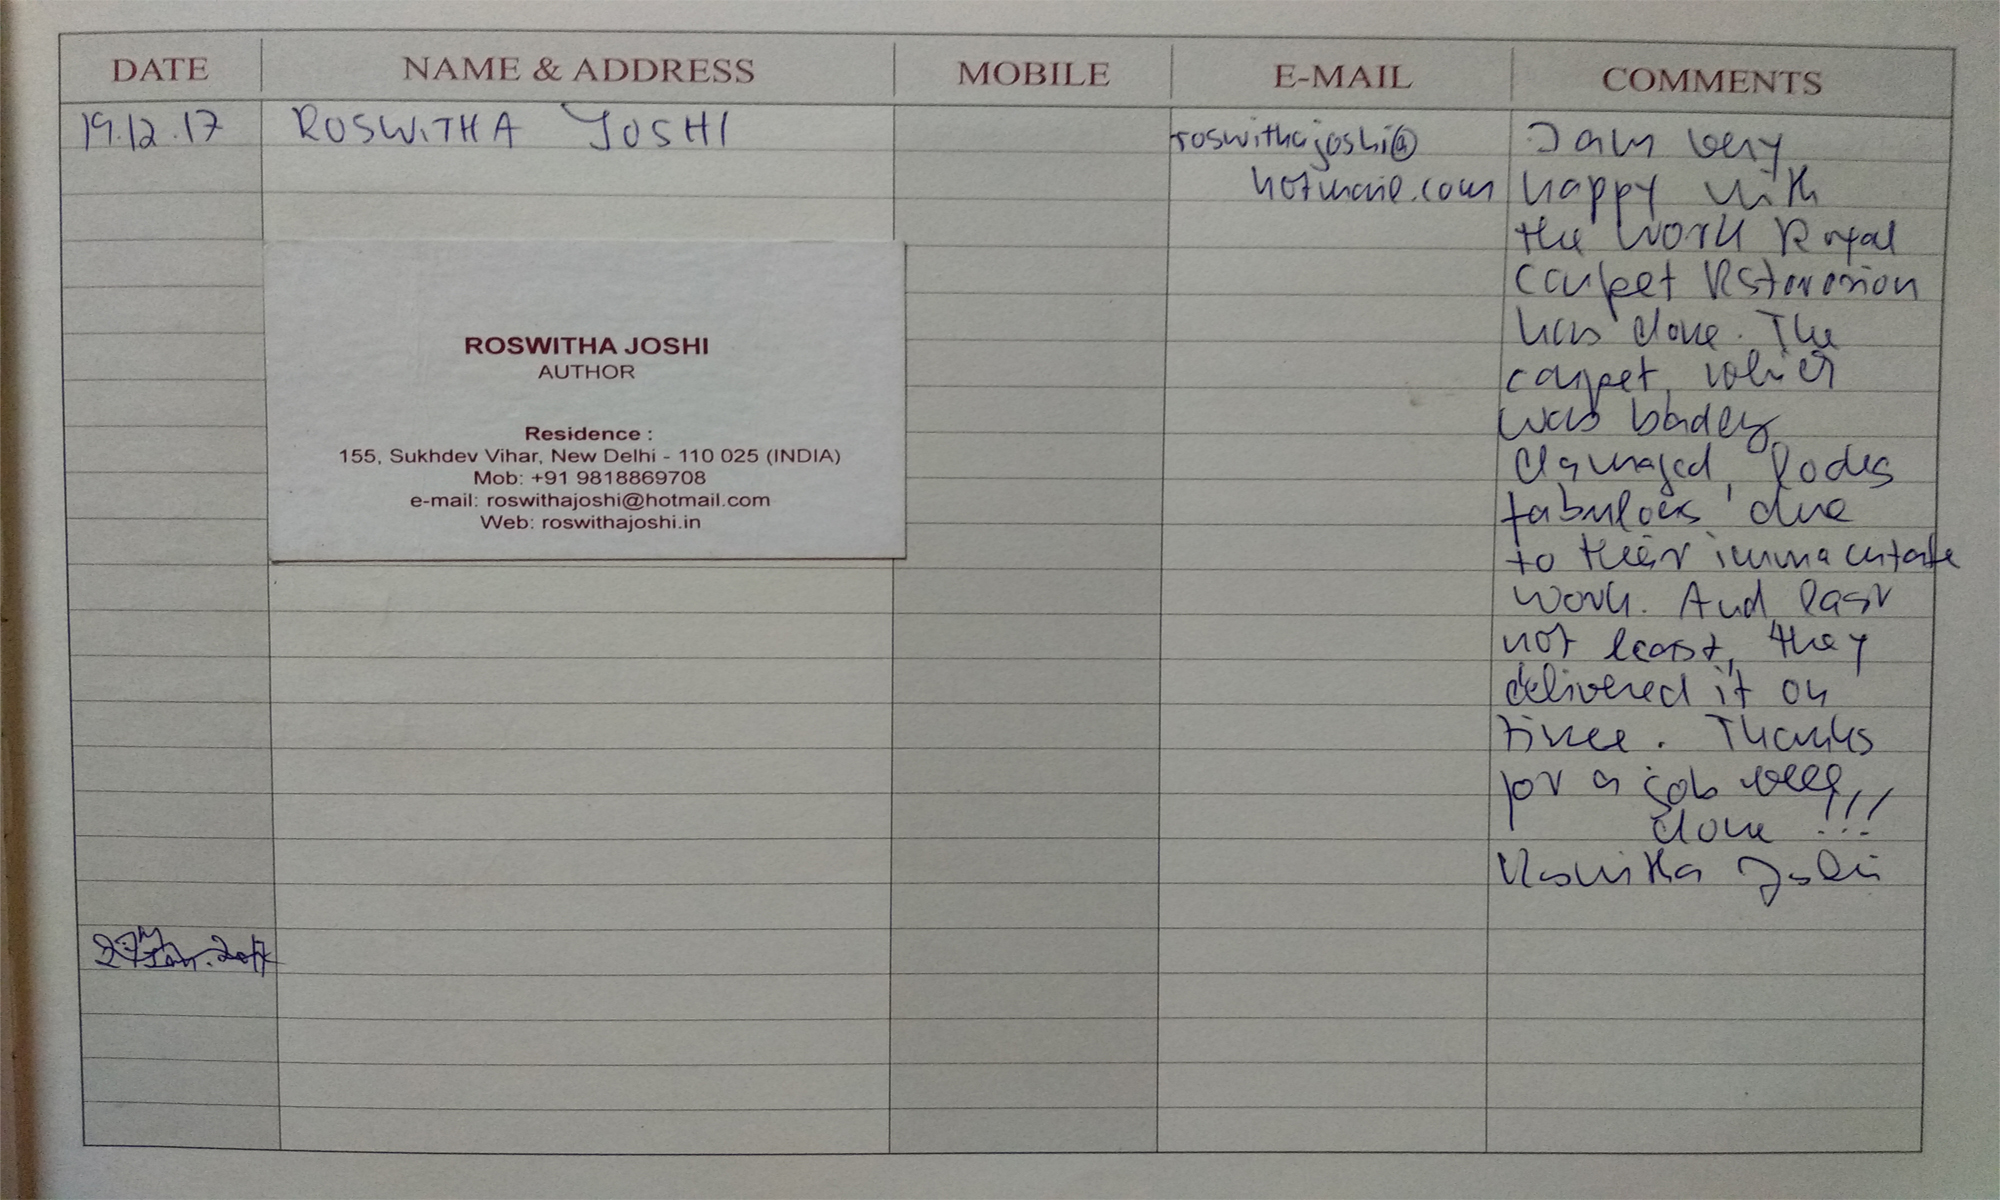 DATE NAME & ADDRESS MOBILE E-MAIL COMMENTS
19.12.17 ROSWITHA JOSHI
roswithajoshi@
hotmail.com
I am very
happy with
the work Royal
carpet Restoration
has done. The
carpet, which
was badly
damaged, looks
fabulous due
to their immaculate
work. And last
not least, they
delivered it on
time. Thanks
for a job well
done !!!
Roswitha Joshi
ROSWITHA JOSHI
AUTHOR
Residence :
155, Sukhdev Vihar, New Delhi - 110 025 (INDIA)
Mob: +91 9818869708
e-mail: roswithajoshi@hotmail.com
Web: roswithajoshi.in
27th Jan. 2017